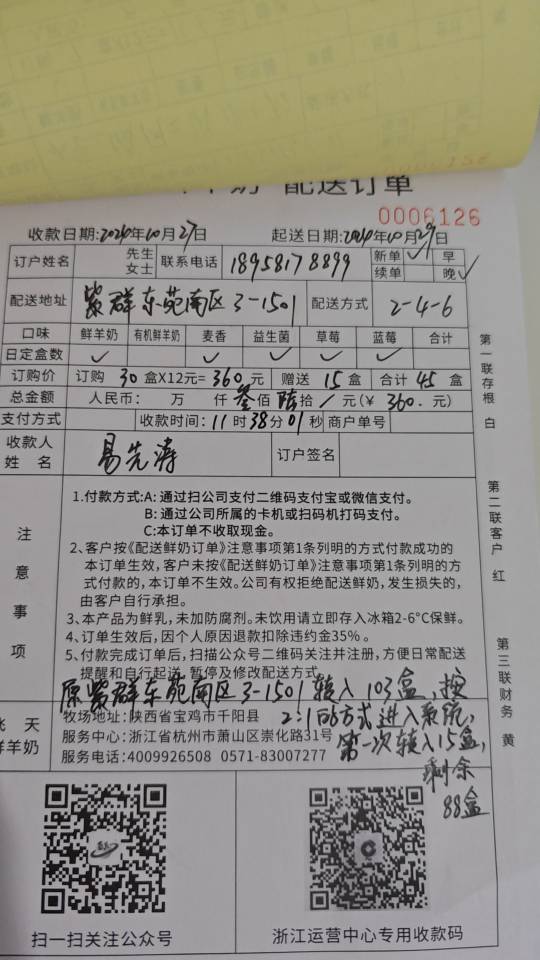 奶 配送订单
0006126
收款日期:2024年10月27日 起送日期:2024年10月29日
订户姓名 先生 女士 联系电话 18958178899 新单✓ 续单 早 晚✓
配送地址 紫群东苑南区3-1501 配送方式 2-4-6
口味 鲜羊奶 有机鲜羊奶 麦香 益生菌 草莓 蓝莓 合计
日定盒数 ✓ ✓ ✓ ✓ ✓
订购价 订购 30 盒X12元= 360 元 赠送 15 盒 合计 45 盒
总金额 人民币: 万 仟 叁佰 陆拾 / 元(¥ 360. 元)
支付方式 收款时间: 11 时 38 分 01 秒 商户单号
收款人姓名 易先涛 订户签名
注意事项
1.付款方式:A: 通过扫公司支付二维码支付宝或微信支付。
B: 通过公司所属的卡机或扫码机打码支付。
C:本订单不收取现金。
2、客户按《配送鲜奶订单》注意事项第1条列明的方式付款成功的
本订单生效,客户未按《配送鲜奶订单》注意事项第1条列明的方
式付款的,本订单不生效。公司有权拒绝配送鲜奶,发生损失的,
由客户自行承担。
3、本产品为鲜乳,未加防腐剂。未饮用请立即存入冰箱2-6°C保鲜。
4、订单生效后,因个人原因退款扣除违约金35%。
5、付款完成订单后,扫描公众号二维码关注并注册,方便日常配送
提醒和自行起送、暂停及修改配送方式。
原紫群东苑南区3-1501转入103盒,按
2:1的方式进入系统,
第一次转入15盒,
剩余
88盒
飞天
鲜羊奶
牧场地址:陕西省宝鸡市千阳县
服务中心:浙江省杭州市萧山区崇化路31号
服务电话:4009926508 0571-83007277
扫一扫关注公众号
浙江运营中心专用收款码
第一联存根 白
第二联客户 红
第三联财务 黄